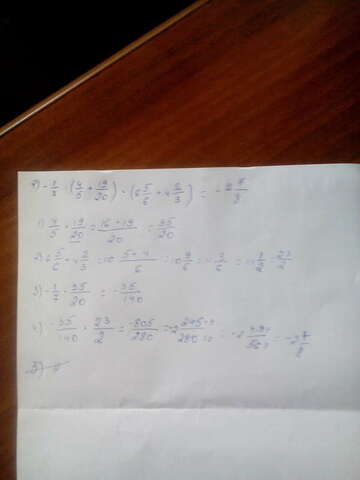 -1/7 · (4/5 + 19/20) · (6 5/6 + 4 2/3) = -2 7/8
1) 4/5 + 19/20 = 16+19/20 = 35/20
2) 6 5/6 + 4 2/3 = 10 5+4/6 = 10 9/6 = 11 3/6 = 11 1/2 = 23/2
3) -1/7 · 35/20 = -35/140
4) -35/140 · 23/2 = -805/280 = -2 245/280 = = -2 7/8
5)